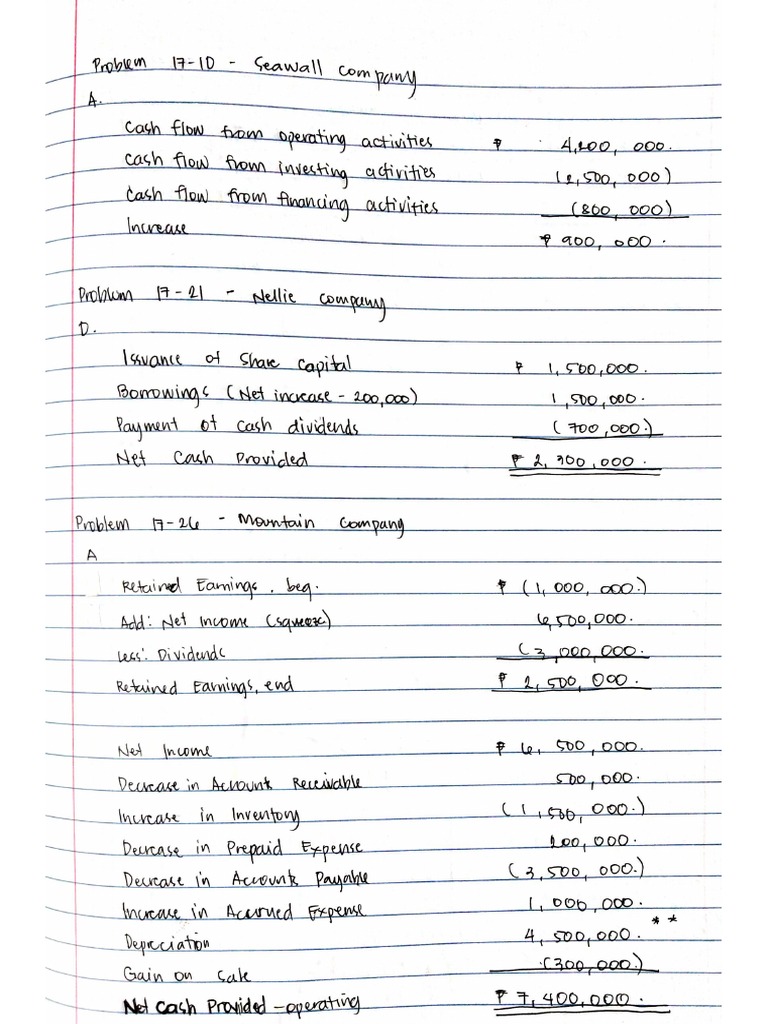 Problem 17-10 - Seawall company
A.
Cash flow from operating activities ₱ 4,200, 000.
Cash flow from investing activities (2,500, 000)
Cash flow from financing activities (800, 000)
Increase ₱ 900, 000.
Problem 17-21 - Nellie company
D.
Issuance of share capital ₱ 1,500,000.
Borrowings (Net increase - 200,000) 1,500,000.
Payment of cash dividends (700,000.)
Net Cash Provided ₱ 2,300,000.
Problem 17-26 - Mountain Company
A
Retained Earnings, beg. ₱ (1,000, 000.)
Add: Net Income (squeeze) 6,500,000.
Less: Dividends (3,000,000.
Retained Earnings, end ₱ 2,500,000.
Net Income ₱ 6,500,000.
Decrease in Accounts Receivable 500,000.
Increase in Inventory (1,500,000.)
Decrease in Prepaid Expense 200,000.
Decrease in Accounts Payable (3,500, 000.)
Increase in Accrued Expense 1,000,000.
Depreciation 4,500,000. **
Gain on sale (300,000.)
Net Cash Provided - operating ₱ 7,400,000.